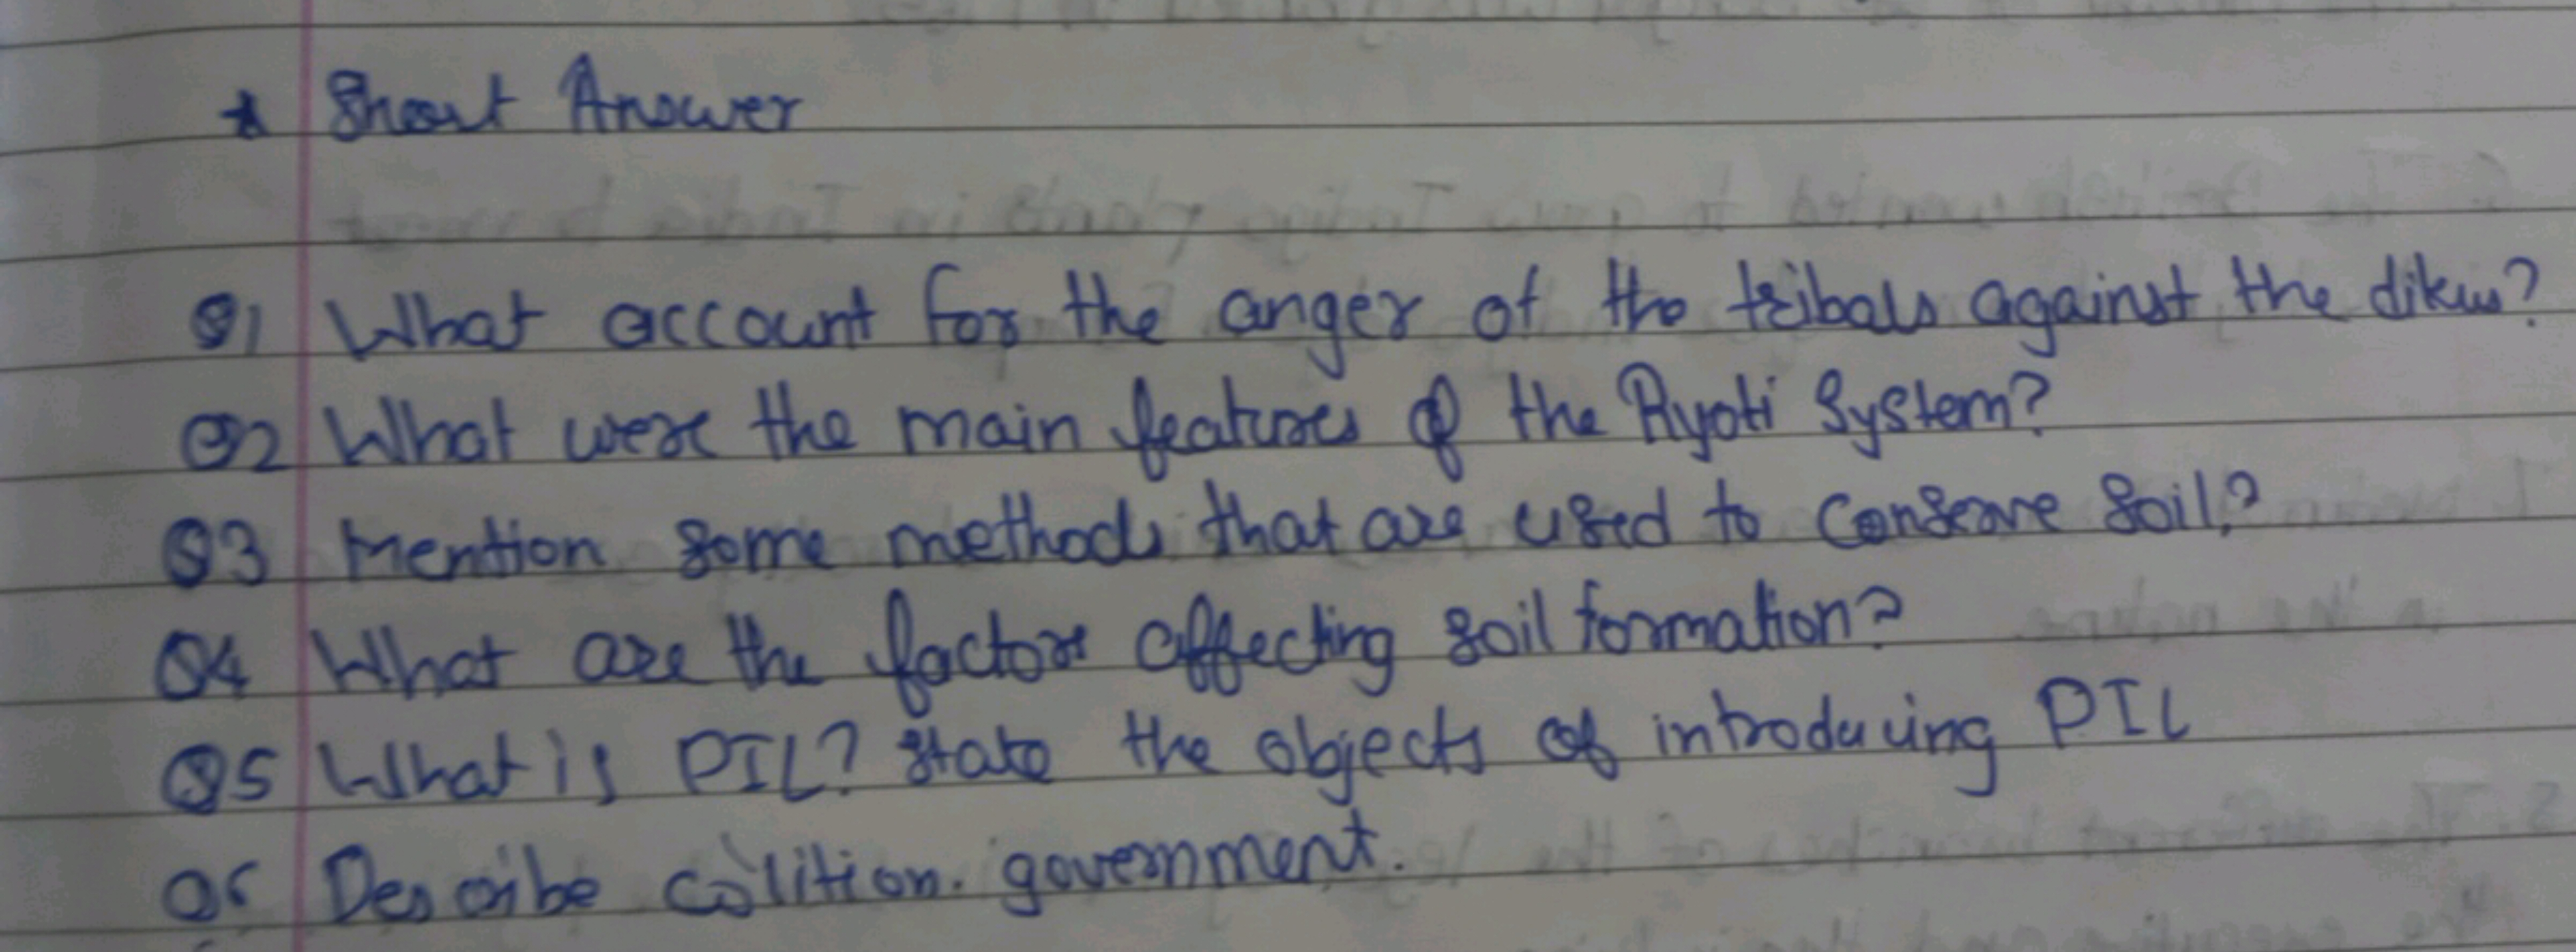 * Short Answer
Q1 What account for the anger of the tribals against the dikus?
Q2 What were the main features of the Ryoti System?
Q3 Mention some methods that are used to Conserve Soil?
Q4 What are the factors affecting soil formation?
Q5 What is PIL? State the objects of introducing PIL
Q6 Describe colition. government.